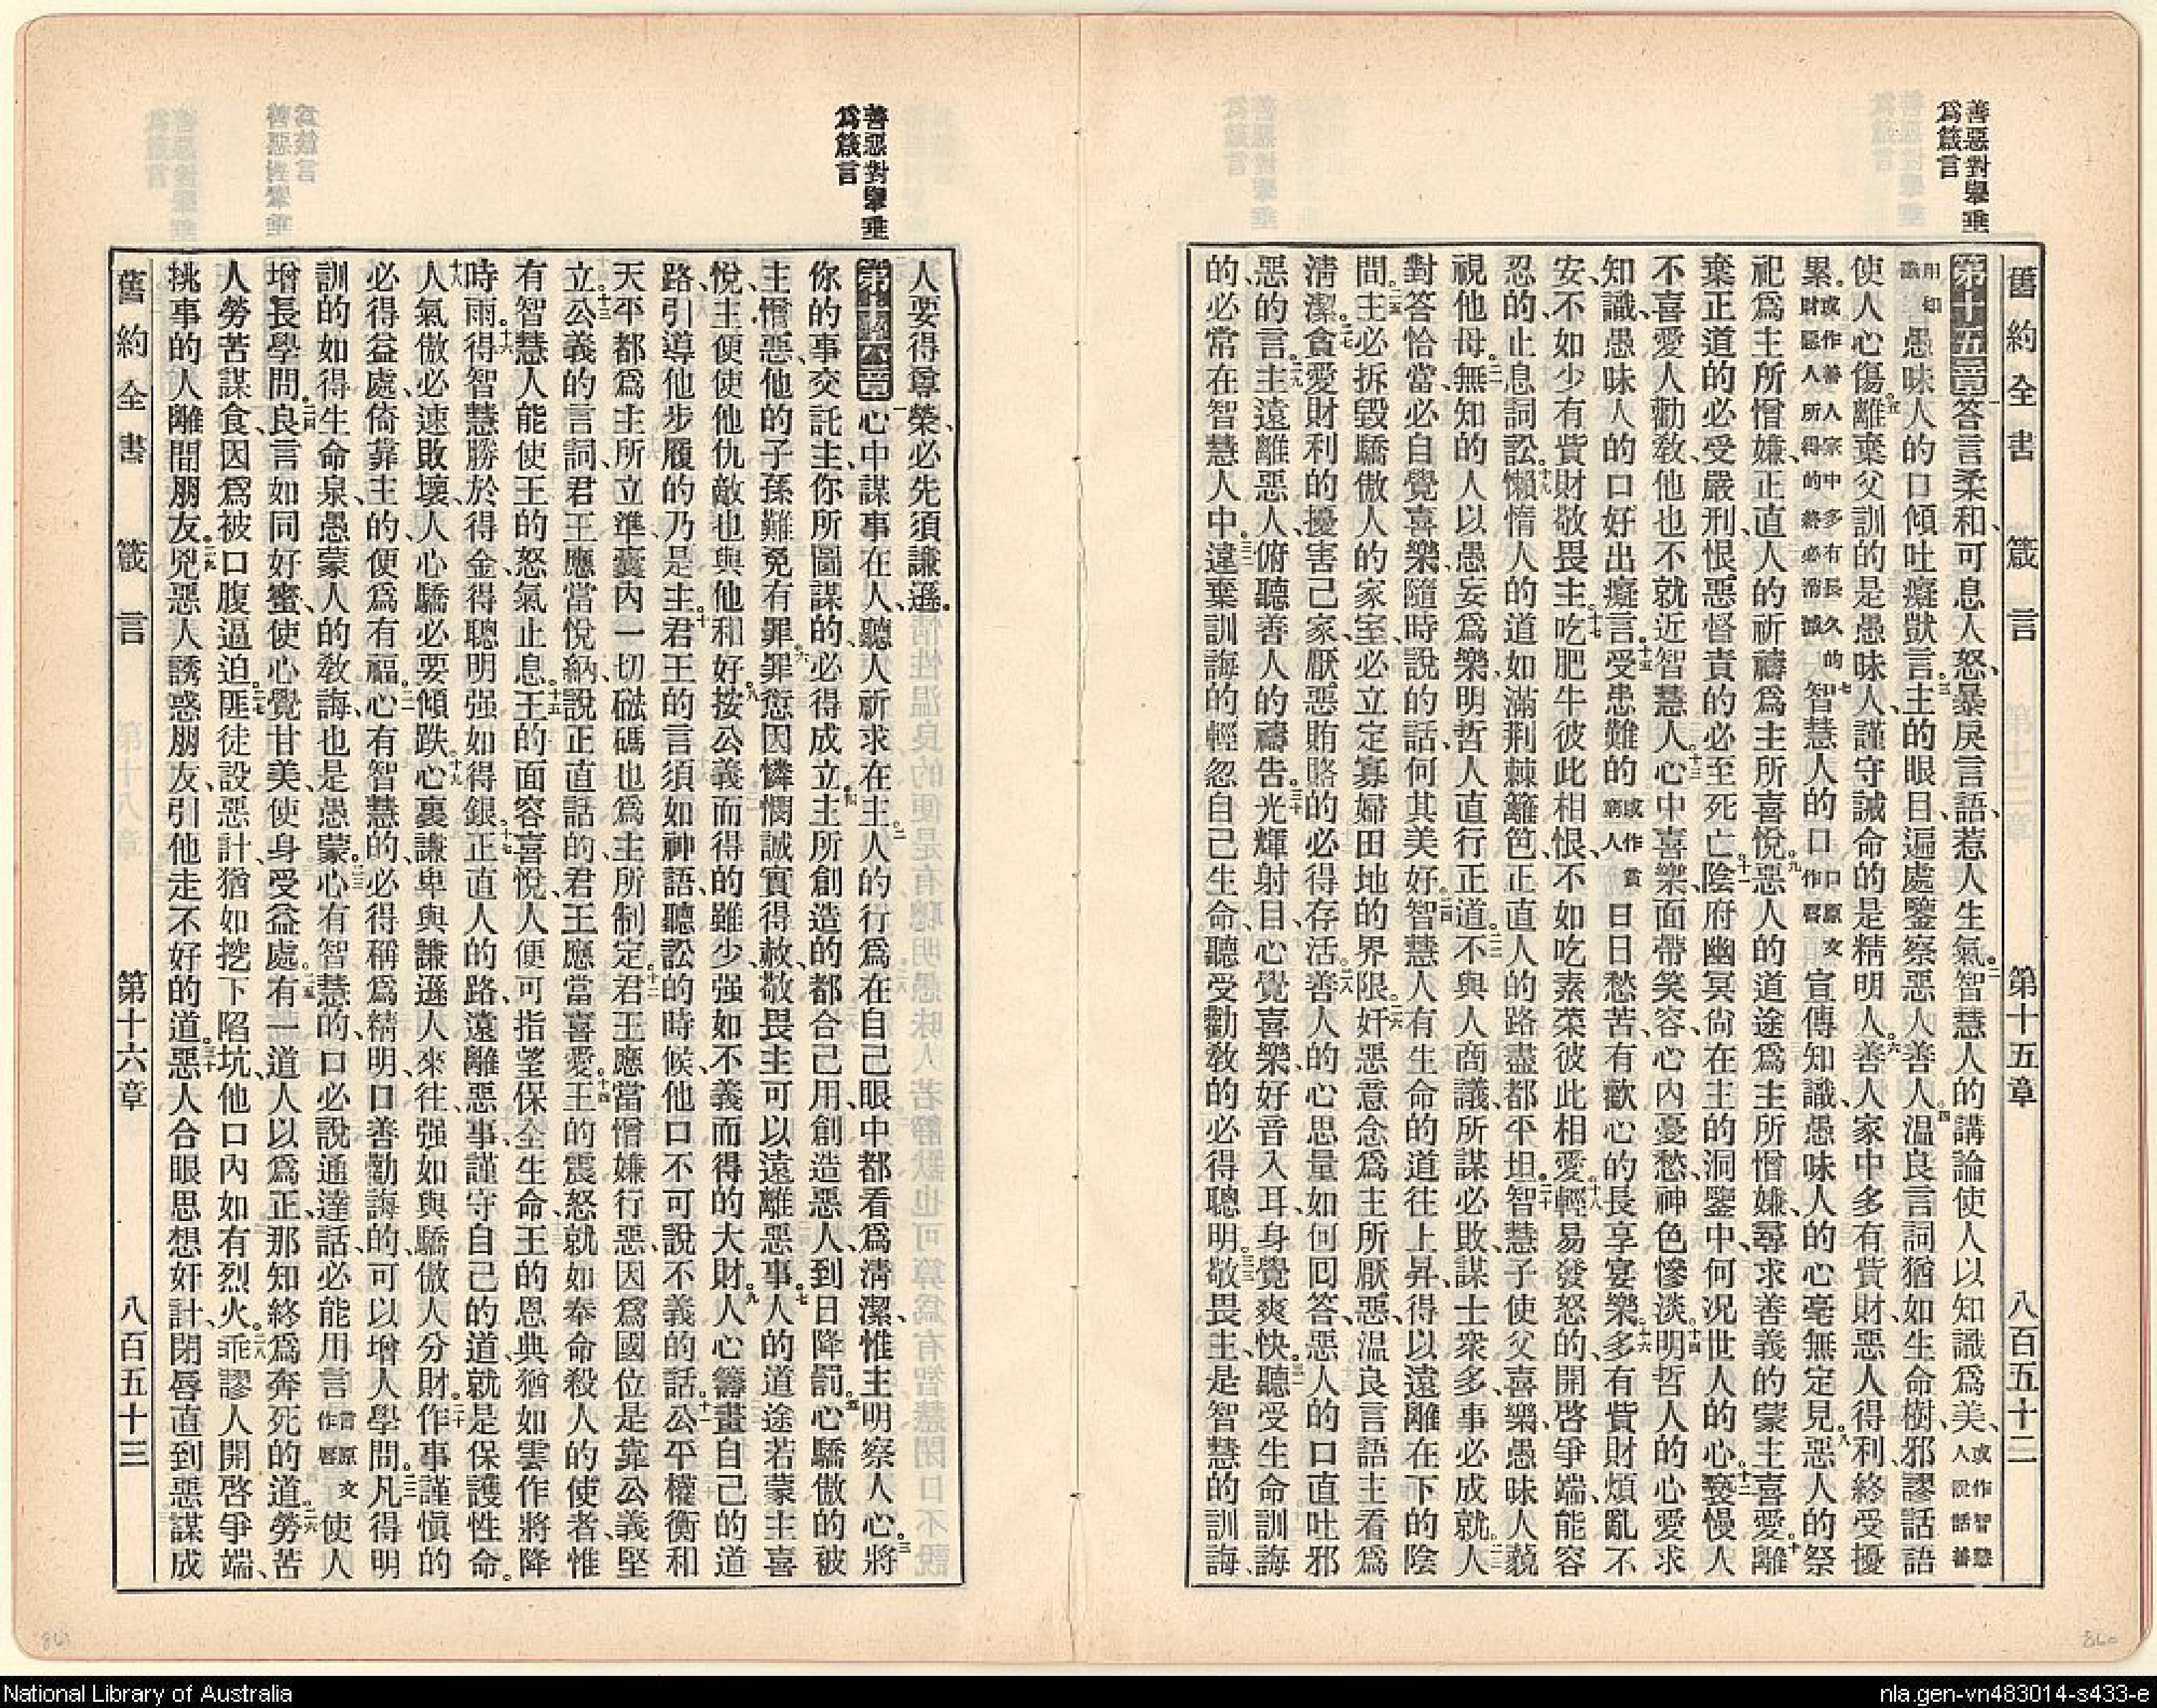 善惡對舉垂
爲箴言
舊約全書 箴言 第十五章 八百五十二
第十五章 一答言柔和、可息人怒、暴戾言語、惹人生氣。二智慧人的講論使人以知識爲美、或作智慧人說話善
用知識愚昧人的口傾吐癡獃言。三主的眼目、遍處鑒察惡人善人。四温良言詞猶如生命樹、邪謬話語
使人心傷。五離棄父訓的是愚昧人、謹守誡命的是精明人。六善人家中多有貲財、惡人得利終受擾
累。或作善人家中多有長久的財惡人所得的終必消滅七智慧人的口口原文作唇宣傳知識、愚昧人的心毫無定見。八惡人的祭
祀爲主所憎嫌、正直人的祈禱爲主所喜悅。九惡人的道途爲主所憎嫌、尋求善義的蒙主喜愛。十離
棄正道的必受嚴刑、恨惡督責的必至死亡。十一陰府幽冥尙在主的洞鑒中、何况世人的心。十二褻慢人
不喜愛人勸教他、也不就近智慧人。十三心中喜樂、面帶笑容、心內憂愁、神色慘淡。十四明哲人的心愛求
知識、愚昧人的口好出癡言。十五受患難的或作貧窮人日日愁苦、有歡心的長享宴樂。十六多有貲財煩亂不
安、不如少有貲財敬畏主。十七吃肥牛彼此相恨、不如吃素菜彼此相愛。十八輕易發怒的、開啓爭端、能容
忍的、止息詞訟。十九懶惰人的道如滿荆棘籬笆、正直人的路盡都平坦。二十智慧子使父喜樂、愚昧人藐
視他母。二一無知的人以愚妄爲樂、明哲人直行正道。二二不與人商議、所謀必敗、謀士衆多、事必成就。二三人
對答恰當、必自覺喜樂、隨時說的話、何其美好。二四智慧人有生命的道往上昇、得以遠離在下的陰
間。二五主必拆毀驕傲人的家室、必立定寡婦田地的界限。二六奸惡意念爲主所厭惡、温良言語主看爲
淸潔。二七貪愛財利的擾害己家、厭惡賄賂的必得存活。二八善人的心思量如何回答、惡人的口直吐邪
惡的言。二九主遠離惡人、俯聽善人的禱告。三十光輝射目、心覺喜樂、好音入耳、身覺爽快。三一聽受生命訓誨
的、必常在智慧人中。三二違棄訓誨的、輕忽自己生命、聽受勸教的必得聰明。三三敬畏主、是智慧的訓誨、
善惡對舉垂
爲箴言
人要得尊榮、必先須謙遜。
第十六章 一心中謀事在人、聽人祈求在主。二人的行爲在自己眼中都看爲淸潔、惟主明察人心。三將
你的事交託主、你所圖謀的、必得成立。四主所創造的、都合己用、創造惡人、到日降罰。五心驕傲的被
主憎惡、他的子孫難免有罪。六罪愆因憐憫誠實得赦、敬畏主可以遠離惡事。七人的道途若蒙主喜
悅、主便使他仇敵也與他和好。八按公義而得的雖少、强如不義而得的大財。九人心籌畫自己的道
路、引導他步履的乃是主。十君王的言須如神語、聽訟的時候他口不可說不義的話。十一公平權衡和
天平都爲主所立準、囊內一切磁碼也爲主所制定。十二君王應當憎嫌行惡、因爲國位是靠公義堅
立。十三公義的言詞、君王應當悅納、說正直話的、君王應當喜愛。十四王的震怒就如奉命殺人的使者、惟
有智慧人能使王的怒氣止息。十五王的面容喜悅、人便可指望保全生命、王的恩典、猶如雲作將降
時雨。十六得智慧勝於得金、得聰明强如得銀。十七正直人的路、遠離惡事、謹守自己的道、就是保護性命。
十八人氣傲必速敗壞、人心驕必要傾跌。十九心裏謙卑與謙遜人來往、强如與驕傲人分財。二十作事謹愼的
必得益處、倚靠主的便爲有福。二一心有智慧的、必得稱爲精明、口善勸誨的、可以增人學問。二二凡得明
訓的如得生命泉、愚蒙人的敎誨、也是愚蒙。二三心有智慧的、口必說通達話、必能用言言原文作唇使人
增長學問。二四良言如同好蜜、使心覺甘美、使身受益處。二五有一道人以爲正、那知終爲奔死的道。二六勞苦
人勞苦謀食、因爲被口腹逼迫。二七匪徒設惡計、猶如挖下陷坑、他口內如有烈火。二八乖謬人開啓爭端、
挑事的人離間朋友。二九兇惡人誘惑朋友、引他走不好的道。三十惡人合眼思想奸計、閉唇直到惡謀成
舊約全書 箴言 第十六章 八百五十三
861
860
National Library of Australia
nla.gen-vn483014-s433-e